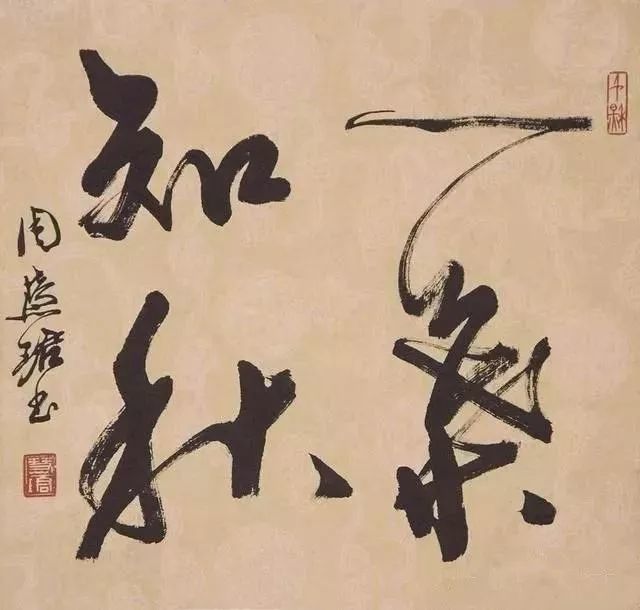 一葉
知秋
周慧珺书